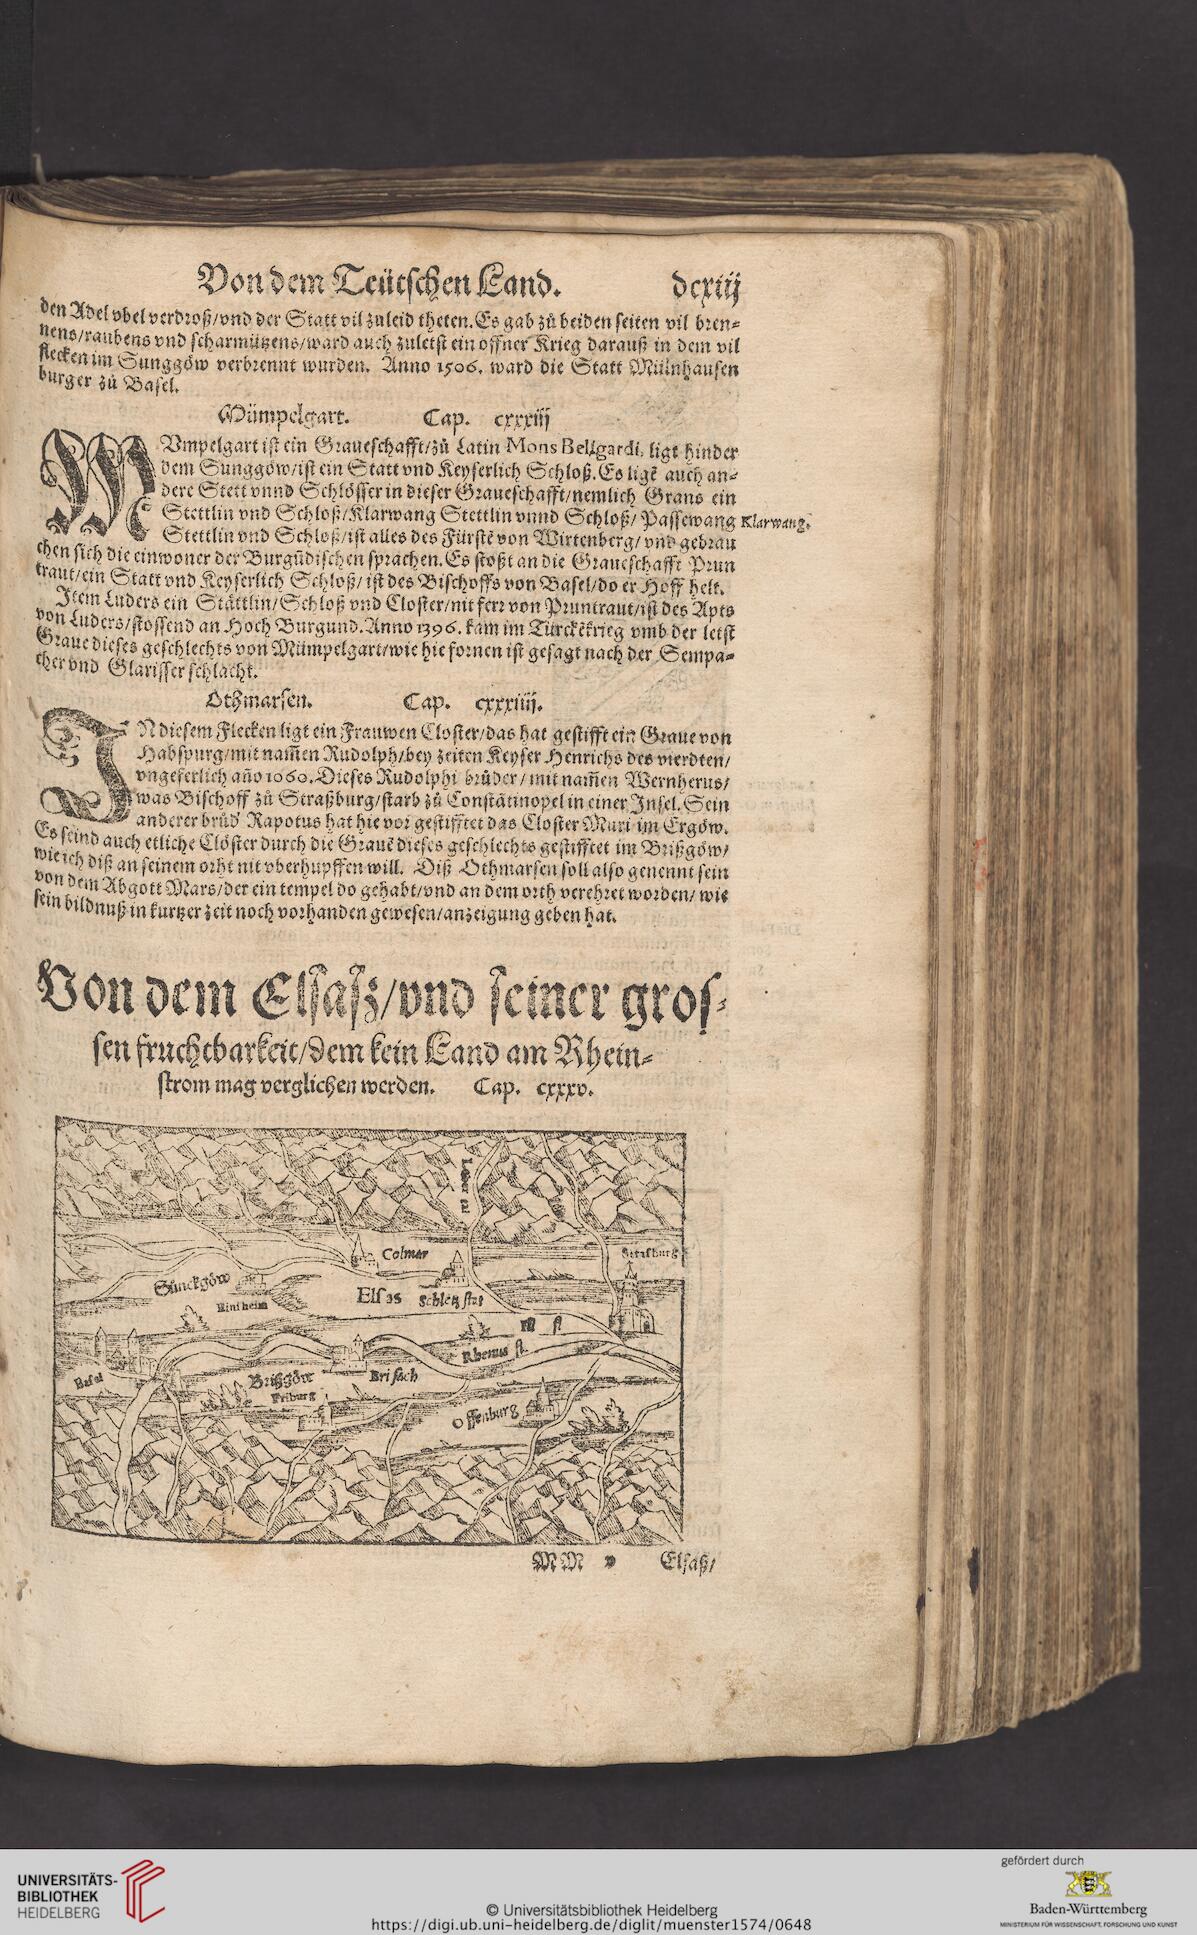 Von dem Teütschen Land. dcxiij
den Adel vbel verdroß/vnd der Statt vil zuleid theten. Es gab zů beiden seiten vil bren⸗
nens/raubens vnd scharmützens/ward auch zuletst ein offner Krieg darauß in dem vil
flecken im Sunggöw verbrennt wurden. Anno 1506. ward die Statt Mülnhausen
burger zů Basel.
Mümpelgart. Cap. cxxxiij
MVmpelgart ist ein Graueschafft/zů Latin Mons Bellgardi, ligt hinder
dem Sunggöw/ist ein Statt vnd Keyserlich Schloß. Es ligẽ auch an⸗
dere Stett vnnd Schlösser in dieser Graueschafft/nemlich Grans ein
Stettlin vnd Schloß/Klarwang Stettlin vnnd Schloß/ Passewang
Klarwang.
Stettlin vnd Schloß/ist alles des Fürstẽ von Wirtenberg/ vnd gebrau
chen sich die einwoner der Burgũdischen sprachen. Es stoßt an die Graueschafft Prun
traut/ein Statt vnd Keyserlich Schloß/ ist des Bischoffs von Basel/do er Hoff helt.
Item Luders ein Stättlin/Schloß vnd Closter/nit ferr von Pruntraut/ist des Apts
von Luders/stossend an Hoch Burgund. Anno 1396. kam im Türckẽkrieg vmb der letst
Graue dieses geschlechts von Mümpelgart/wie hie fornen ist gesagt nach der Sempa⸗
cher vnd Glarisser schlacht.
Othmarsen. Cap. cxxxiiij.
IN diesem Flecken ligt ein Frauwen Closter/das hat gestifft ein Graue von
Habspurg/mit nam̃en Rudolph/bey zeiten Keyser Henrichs des vierdten/
vngeferlich año 1060. Dieses Rudolphi brüder/ mit nam̃en Wernherus/
was Bischoff zů Straßburg/starb zů Constãtinopel in einer Insel. Sein
anderer brůd' Rapotus hat hie vor gestifftet das Closter Muri im Ergöw.
Es seind auch etliche Clöster durch die Grauẽ dieses geschlechts gestifftet im Brißgöw/
wie ich diß an seinem orht nit vberhupffen will. Diß Othmarsen soll also genennt sein
von dem Abgott Mars/der ein tempel do gehabt/vnd an dem orth verehret worden/ wie
sein bildnuß in kurtzer zeit noch vorhanden gewesen/anzeigung geben hat.
Von dem Elsasz/vnd seiner gros⸗
sen fruchtbarkeit/dem kein Land am Rhein⸗
strom mag verglichen werden. Cap. cxxxv.
Leber tal
Colmar
Strasburg
Sunckgöw
Elsas
Schletzstat
Ensisheim
Ill fl
Rhenus fl.
Basel
Brißgöw
Brisach
Friburg
Offenburg
MM v Elsaß/
UNIVERSITÄTS-
BIBLIOTHEK
HEIDELBERG
© Universitätsbibliothek Heidelberg
https://digi.ub.uni-heidelberg.de/diglit/muenster1574/0648
gefördert durch
Baden-Württemberg
MINISTERIUM FÜR WISSENSCHAFT, FORSCHUNG UND KUNST